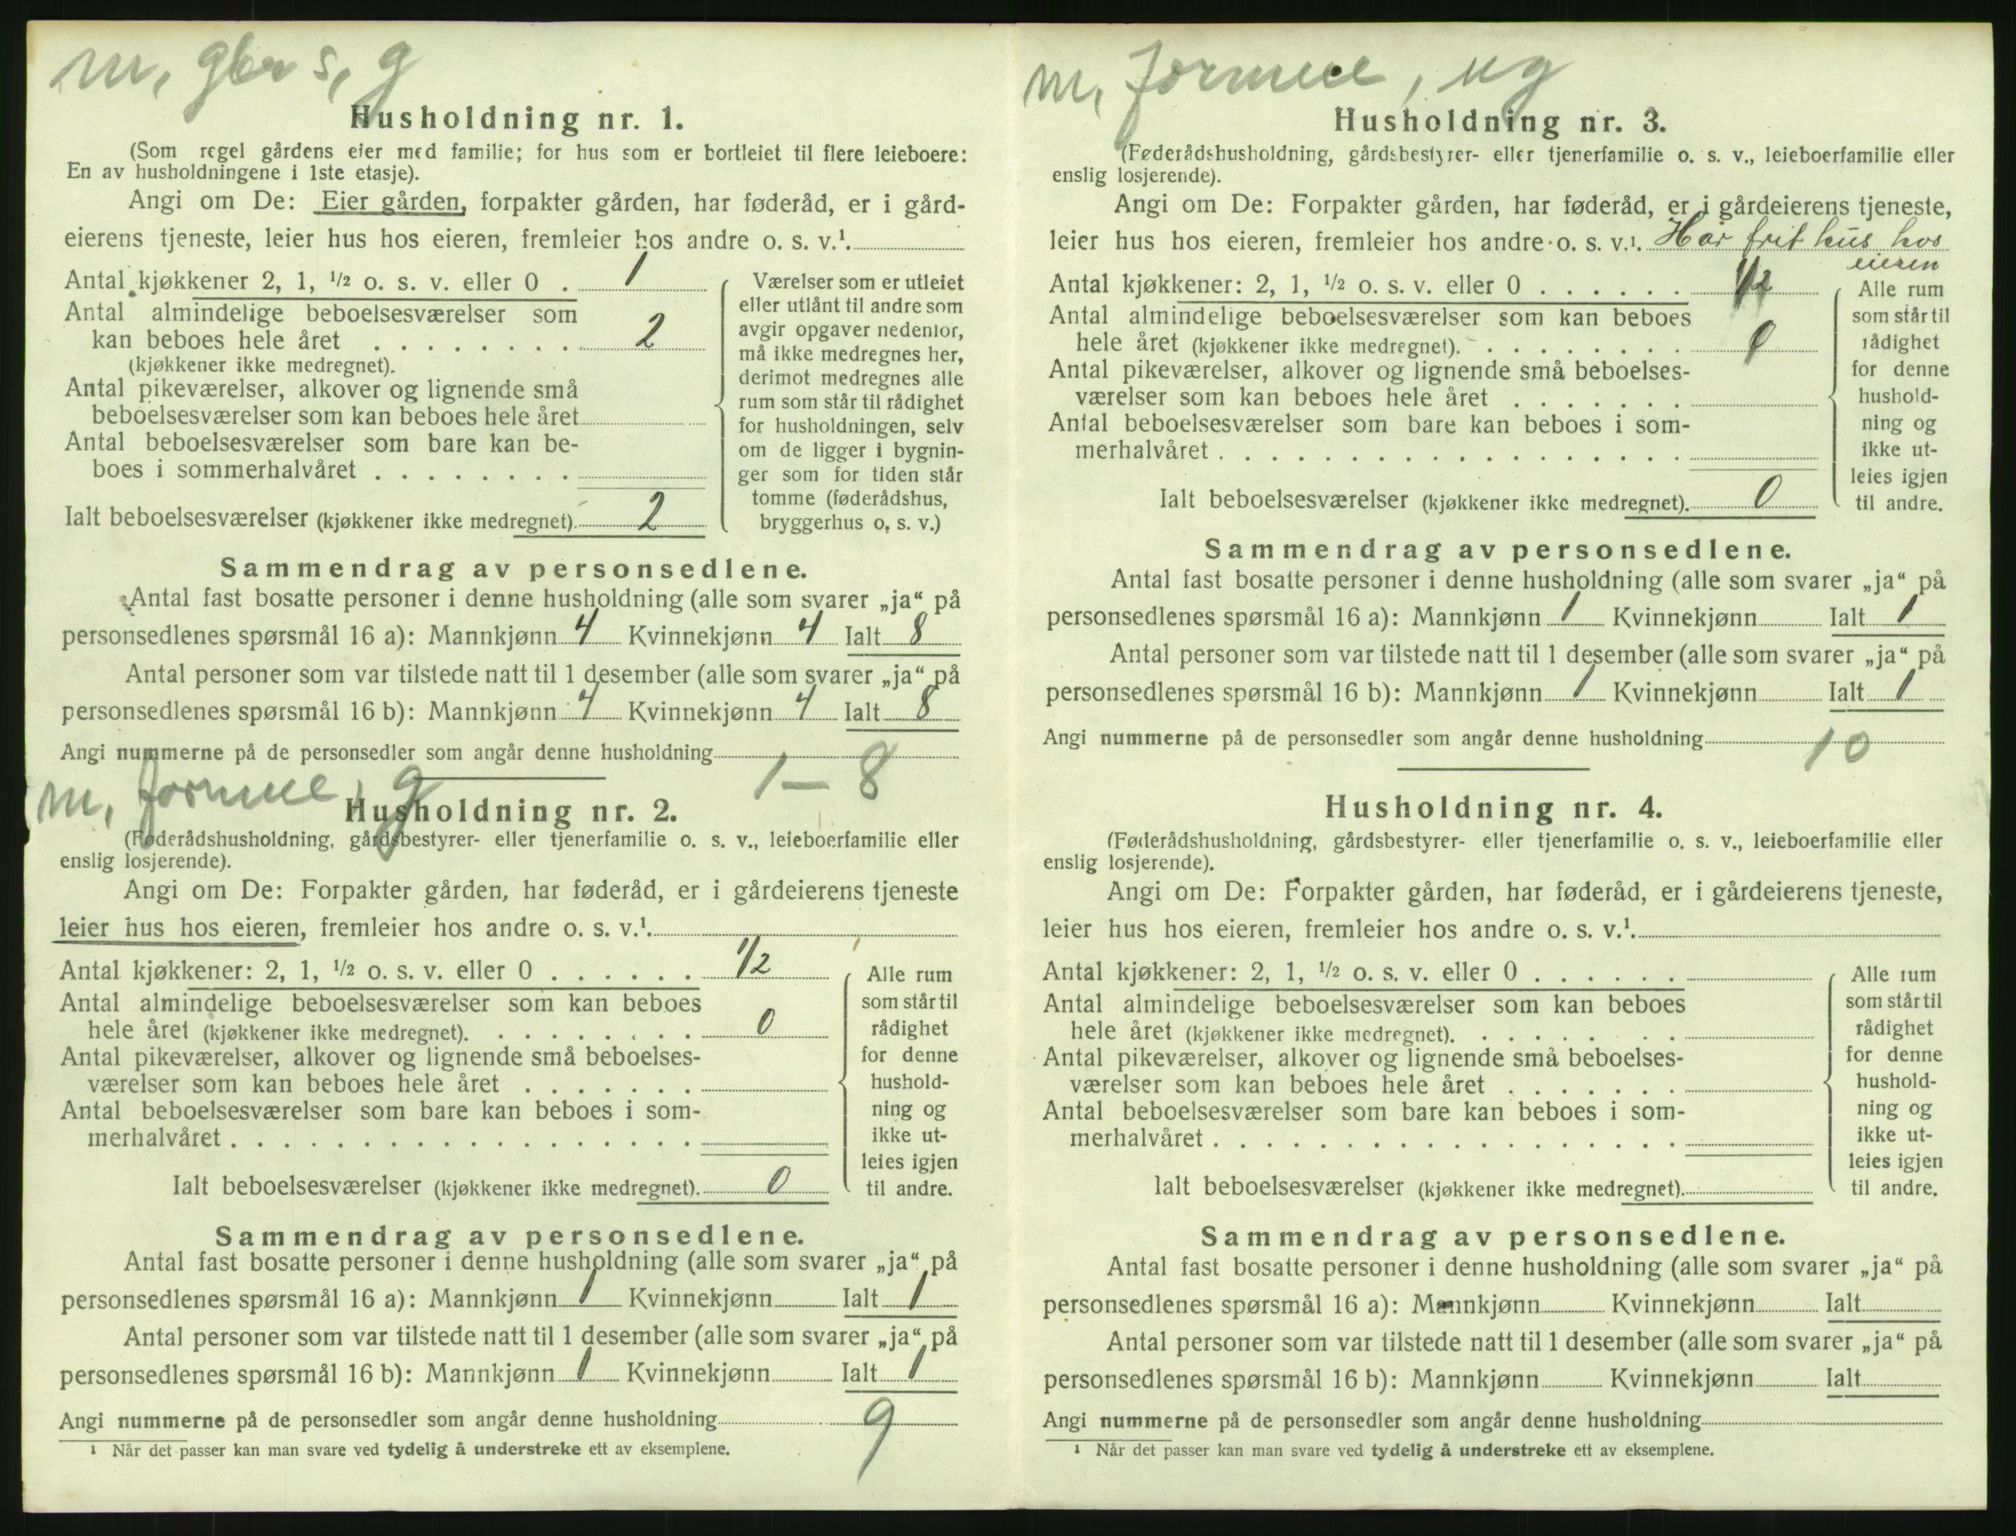 m, gbr s, g
Husholdning nr. 1.
(Som regel gårdens eier med familie; for hus som er bortleiet til flere leieboere:
En av husholdningene i 1ste etasje).
Angi om De: Eier gården, forpakter gården, har føderåd, er i gård-
eierens tjeneste, leier hus hos eieren, fremleier hos andre o. s. v.¹.
Antal kjøkkener 2, 1, ½ o. s. v. eller 0 . 1
Antal almindelige beboelsesværelser som
kan beboes hele året . . . . . . . . 2
(kjøkkener ikke medregnet).
Antal pikeværelser, alkover og lignende små
beboelsesværelser som kan beboes hele året
Antal beboelsesværelser som bare kan be-
boes i sommerhalvåret . . . . . . . .
Ialt beboelsesværelser (kjøkkener ikke medregnet). 2
Værelser som er utleiet
eller utlånt til andre som
avgir opgaver nedenfor,
må ikke medregnes her,
derimot medregnes alle
rum som står til rådighet
for husholdningen, selv
om de ligger i bygnin-
ger som for tiden står
tomme (føderådshus,
bryggerhus o. s. v.)
Sammendrag av personsedlene.
Antal fast bosatte personer i denne husholdning (alle som svarer „ja“ på
personsedlenes spørsmål 16 a): Mannkjønn 4 Kvinnekjønn 4 Ialt 8
Antal personer som var tilstede natt til 1 desember (alle som svarer „ja“ på
personsedlenes spørsmål 16 b): Mannkjønn 4 Kvinnekjønn 4 Ialt 8
Angi nummerne på de personsedler som angår denne husholdning 1 – 8
m, formue, g
Husholdning nr. 2.
(Føderådshusholdning, gårdsbestyrer- eller tjenerfamilie o. s. v., leieboerfamilie eller
enslig losjerende).
Angi om De: Forpakter gården, har føderåd, er i gårdeierens tjeneste
leier hus hos eieren, fremleier hos andre o. s. v.¹.
Antal kjøkkener: 2, 1, ½ o. s. v. eller 0 . . . . . . 1/2
Antal almindelige beboelsesværelser som kan beboes
hele året (kjøkkener ikke medregnet). . . . . . . . . 0
Antal pikeværelser, alkover og lignende små beboelses-
værelser som kan beboes hele året . . . . . . .
Antal beboelsesværelser som bare kan beboes i som-
merhalvåret . . . . . . . . . . . . . . . . .
Ialt beboelsesværelser (kjøkkener ikke medregnet). 0
Alle rum
som står til
rådighet
for denne
hushold-
ning og
ikke ut-
leies igjen
til andre.
Sammendrag av personsedlene.
Antal fast bosatte personer i denne husholdning (alle som svarer „ja“ på
personsedlenes spørsmål 16 a): Mannkjønn 1 Kvinnekjønn Ialt 1
Antal personer som var tilstede natt til 1 desember (alle som svarer „ja“ på
personsedlenes spørsmål 16 b): Mannkjønn 1 Kvinnekjønn Ialt 1
Angi nummerne på de personsedler som angår denne husholdning 9
¹ Når det passer kan man svare ved tydelig å understreke ett av eksemplene.
m, formue, ug
Husholdning nr. 3.
(Føderådshusholdning, gårdsbestyrer- eller tjenerfamilie o. s. v., leieboerfamilie eller
enslig losjerende).
Angi om De: Forpakter gården, har føderåd, er i gårdeierens tjeneste,
leier hus hos eieren, fremleier hos andre o. s. v.¹. Har frit hus hos
eieren
Antal kjøkkener: 2, 1, ½ o. s. v. eller 0 . . . . . . 1/2
Antal almindelige beboelsesværelser som kan beboes
hele året (kjøkkener ikke medregnet). . . . . . . . . 0
Antal pikeværelser, alkover og lignende små beboelses-
værelser som kan beboes hele året . . . . . . .
Antal beboelsesværelser som bare kan beboes i som-
merhalvåret . . . . . . . . . . . . . . . . .
Ialt beboelsesværelser (kjøkkener ikke medregnet). 0
Alle rum
som står til
rådighet
for denne
hushold-
ning og
ikke ut-
leies igjen
til andre.
Sammendrag av personsedlene.
Antal fast bosatte personer i denne husholdning (alle som svarer „ja“ på
personsedlenes spørsmål 16 a): Mannkjønn 1 Kvinnekjønn Ialt 1
Antal personer som var tilstede natt til 1 desember (alle som svarer „ja“ på
personsedlenes spørsmål 16 b): Mannkjønn 1 Kvinnekjønn Ialt 1
Angi nummerne på de personsedler som angår denne husholdning 10
Husholdning nr. 4.
(Føderådshusholdning, gårdsbestyrer- eller tjenerfamilie o. s. v., leieboerfamilie eller
enslig losjerende).
Angi om De: Forpakter gården, har føderåd, er i gårdeierens tjeneste,
leier hus hos eieren, fremleier hos andre o. s. v.¹.
Antal kjøkkener: 2, 1, ½ o. s. v. eller 0 . . . . . .
Antal almindelige beboelsesværelser som kan beboes
hele året (kjøkkener ikke medregnet). . . . . . . . .
Antal pikeværelser, alkover og lignende små beboelses-
værelser som kan beboes hele året . . . . . . .
Antal beboelsesværelser som bare kan beboes i som-
merhalvåret . . . . . . . . . . . . . . . . .
Ialt beboelsesværelser (kjøkkener ikke medregnet).
Alle rum
som står til
rådighet
for denne
hushold-
ning og
ikke ut-
leies igjen
til andre.
Sammendrag av personsedlene.
Antal fast bosatte personer i denne husholdning (alle som svarer „ja“ på
personsedlenes spørsmål 16 a): Mannkjønn Kvinnekjønn Ialt
Antal personer som var tilstede natt til 1 desember (alle som svarer „ja“ på
personsedlenes spørsmål 16 b): Mannkjønn Kvinnekjønn Ialt
Angi nummerne på de personsedler som angår denne husholdning
¹ Når det passer kan man svare ved tydelig å understreke ett av eksemplene.